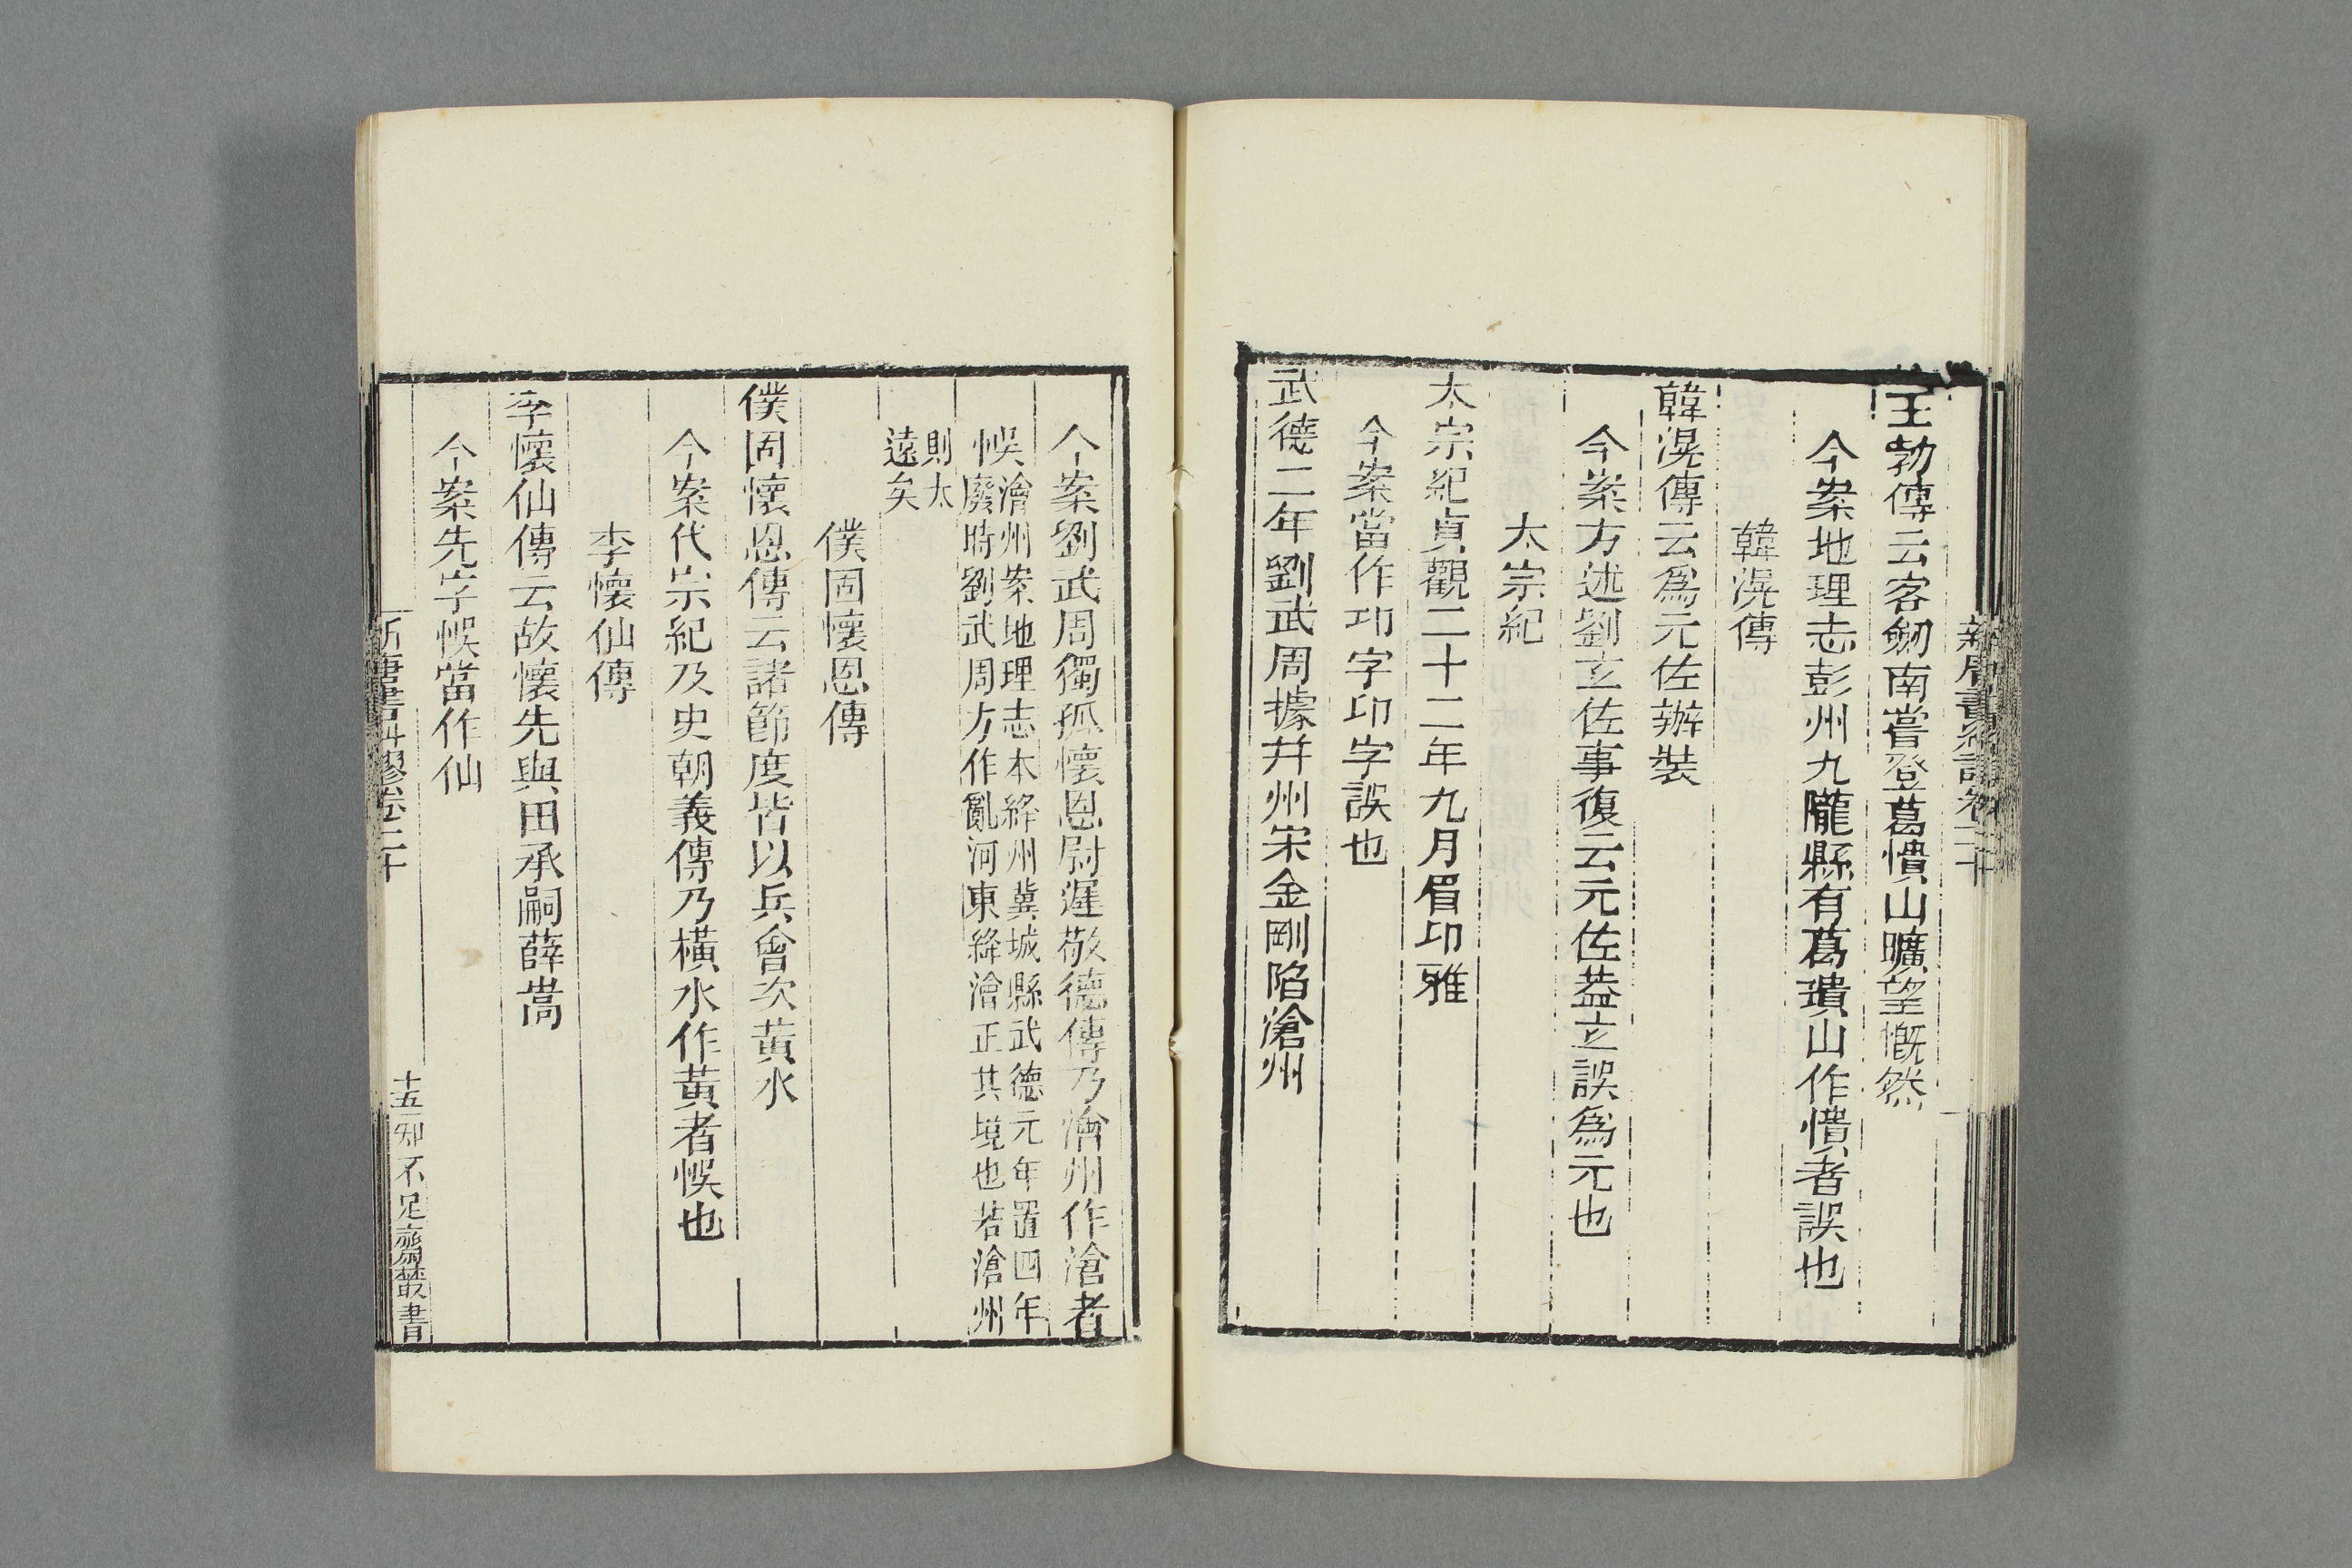 王勃傳云客劒南嘗登葛憒山曠望慨然
今案地理志彭州九隴縣有葛璝山作憒者誤也
韓滉傳
韓滉傳云爲元佐辦裝
今案方述劉玄佐事復云元佐葢玄誤爲元也
太宗紀
太宗紀貞觀二十二年九月眉卬雅
今案當作邛字卬字誤也
武德二年劉武周據并州宋金剛陷滄州
今案劉武周獨孤懷恩尉遲敬德傳乃澮州作滄者
悞
澮州案地理志本絳州冀城縣武德元年置四年
廢時劉武周方作亂河東絳澮正其境也若滄州
則太
遠矣
僕固懷恩傳
僕固懷恩傳云諸節度皆以兵會次黃水
今案代宗紀及史朝義傳乃橫水作黃者悞也
李懷仙傳
李懷仙傳云故懷先與田承嗣薛嵩
今案先字悞當作仙
新唐書糾謬卷二十
十五
知不足齋叢書